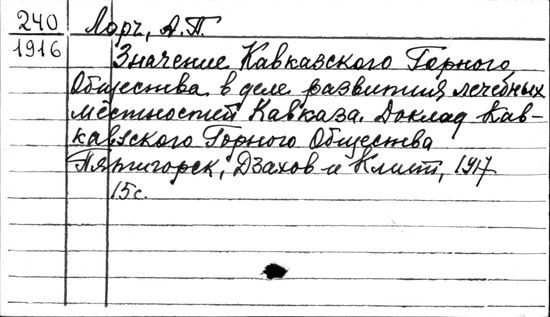 240 Лоръ, А.П.
1916 Значение Кавказского Горного
Общества в деле развития лечебных
местностей Кавказа. Доклад Кав-
казского Горного Общества
Пятигорск, Дзахов и Клит, 1917
15 с.